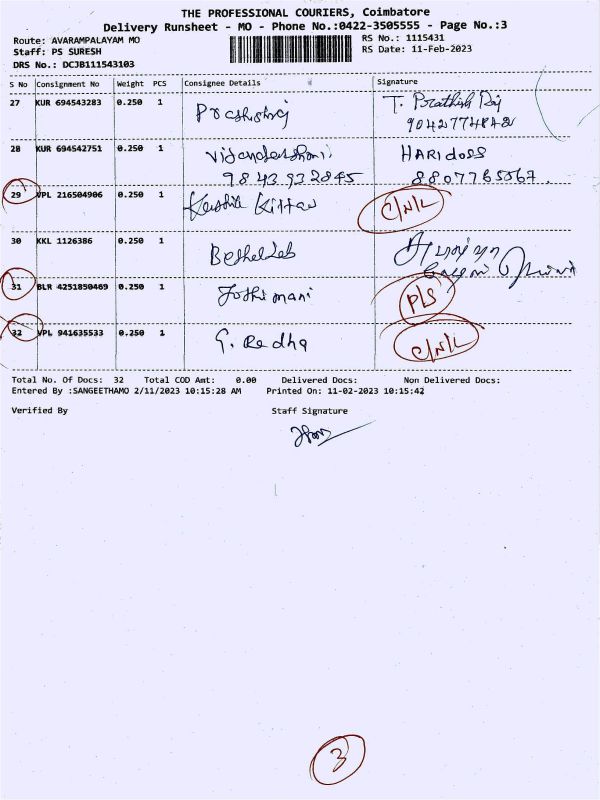 THE PROFESSIONAL COURIERS, Coimbatore
Delivery Runsheet - MO - Phone No.:0422-3505555 - Page No.:3
Route: AVARAMPALAYAM MO RS No.: 1115431
Staff: PS SURESH RS Date: 11-Feb-2023
DRS No.: DCJB111543103
S No Consignment No Weight PCS Consignee Details Signature
27 KUR 694543283 0.250 1 T. Prathish Raj
9042774842
28 KUR 694542751 0.250 1 HARIDOSS
9843932845 8807765867.
29 VPL 216504906 0.250 1 C/N/L
30 KKL 1126386 0.250 1
31 BLR 4251850469 0.250 1 Jothimani P/S
32 VPL 941635533 0.250 1 G. Redha C/N/L
Total No. Of Docs: 32 Total COD Amt: 0.00 Delivered Docs: Non Delivered Docs:
Entered By :SANGEETHAMO 2/11/2023 10:15:28 AM Printed On: 11-02-2023 10:15:42
Verified By Staff Signature
3